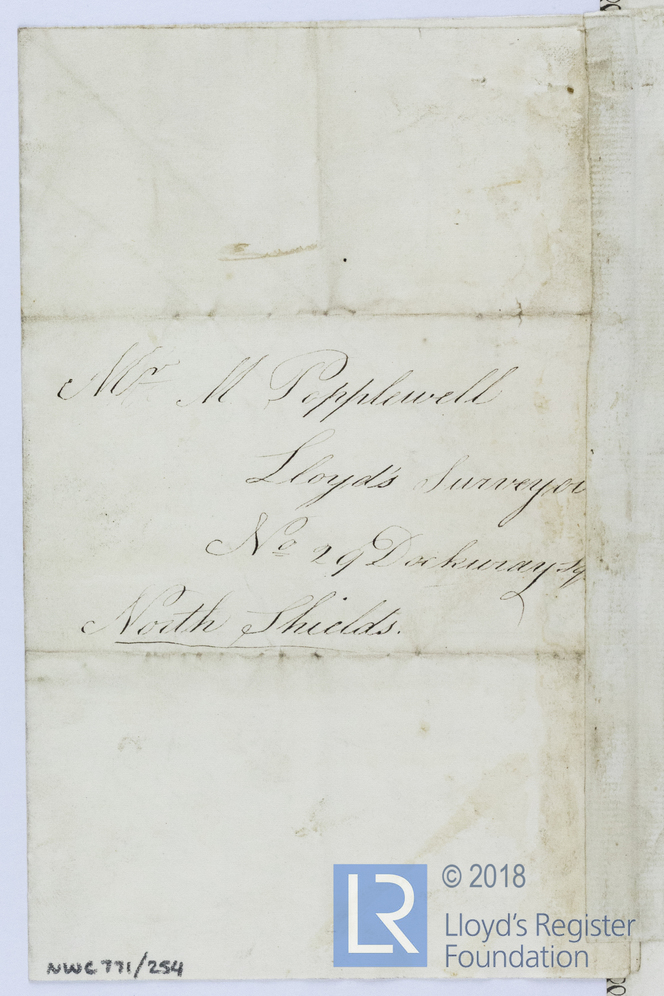 Mr M Popplewell
Lloyd's Surveyor
No 29 Dockwray Sq
North Shields.
NWC 771/254
LR
© 2018
Lloyd's Register
Foundation